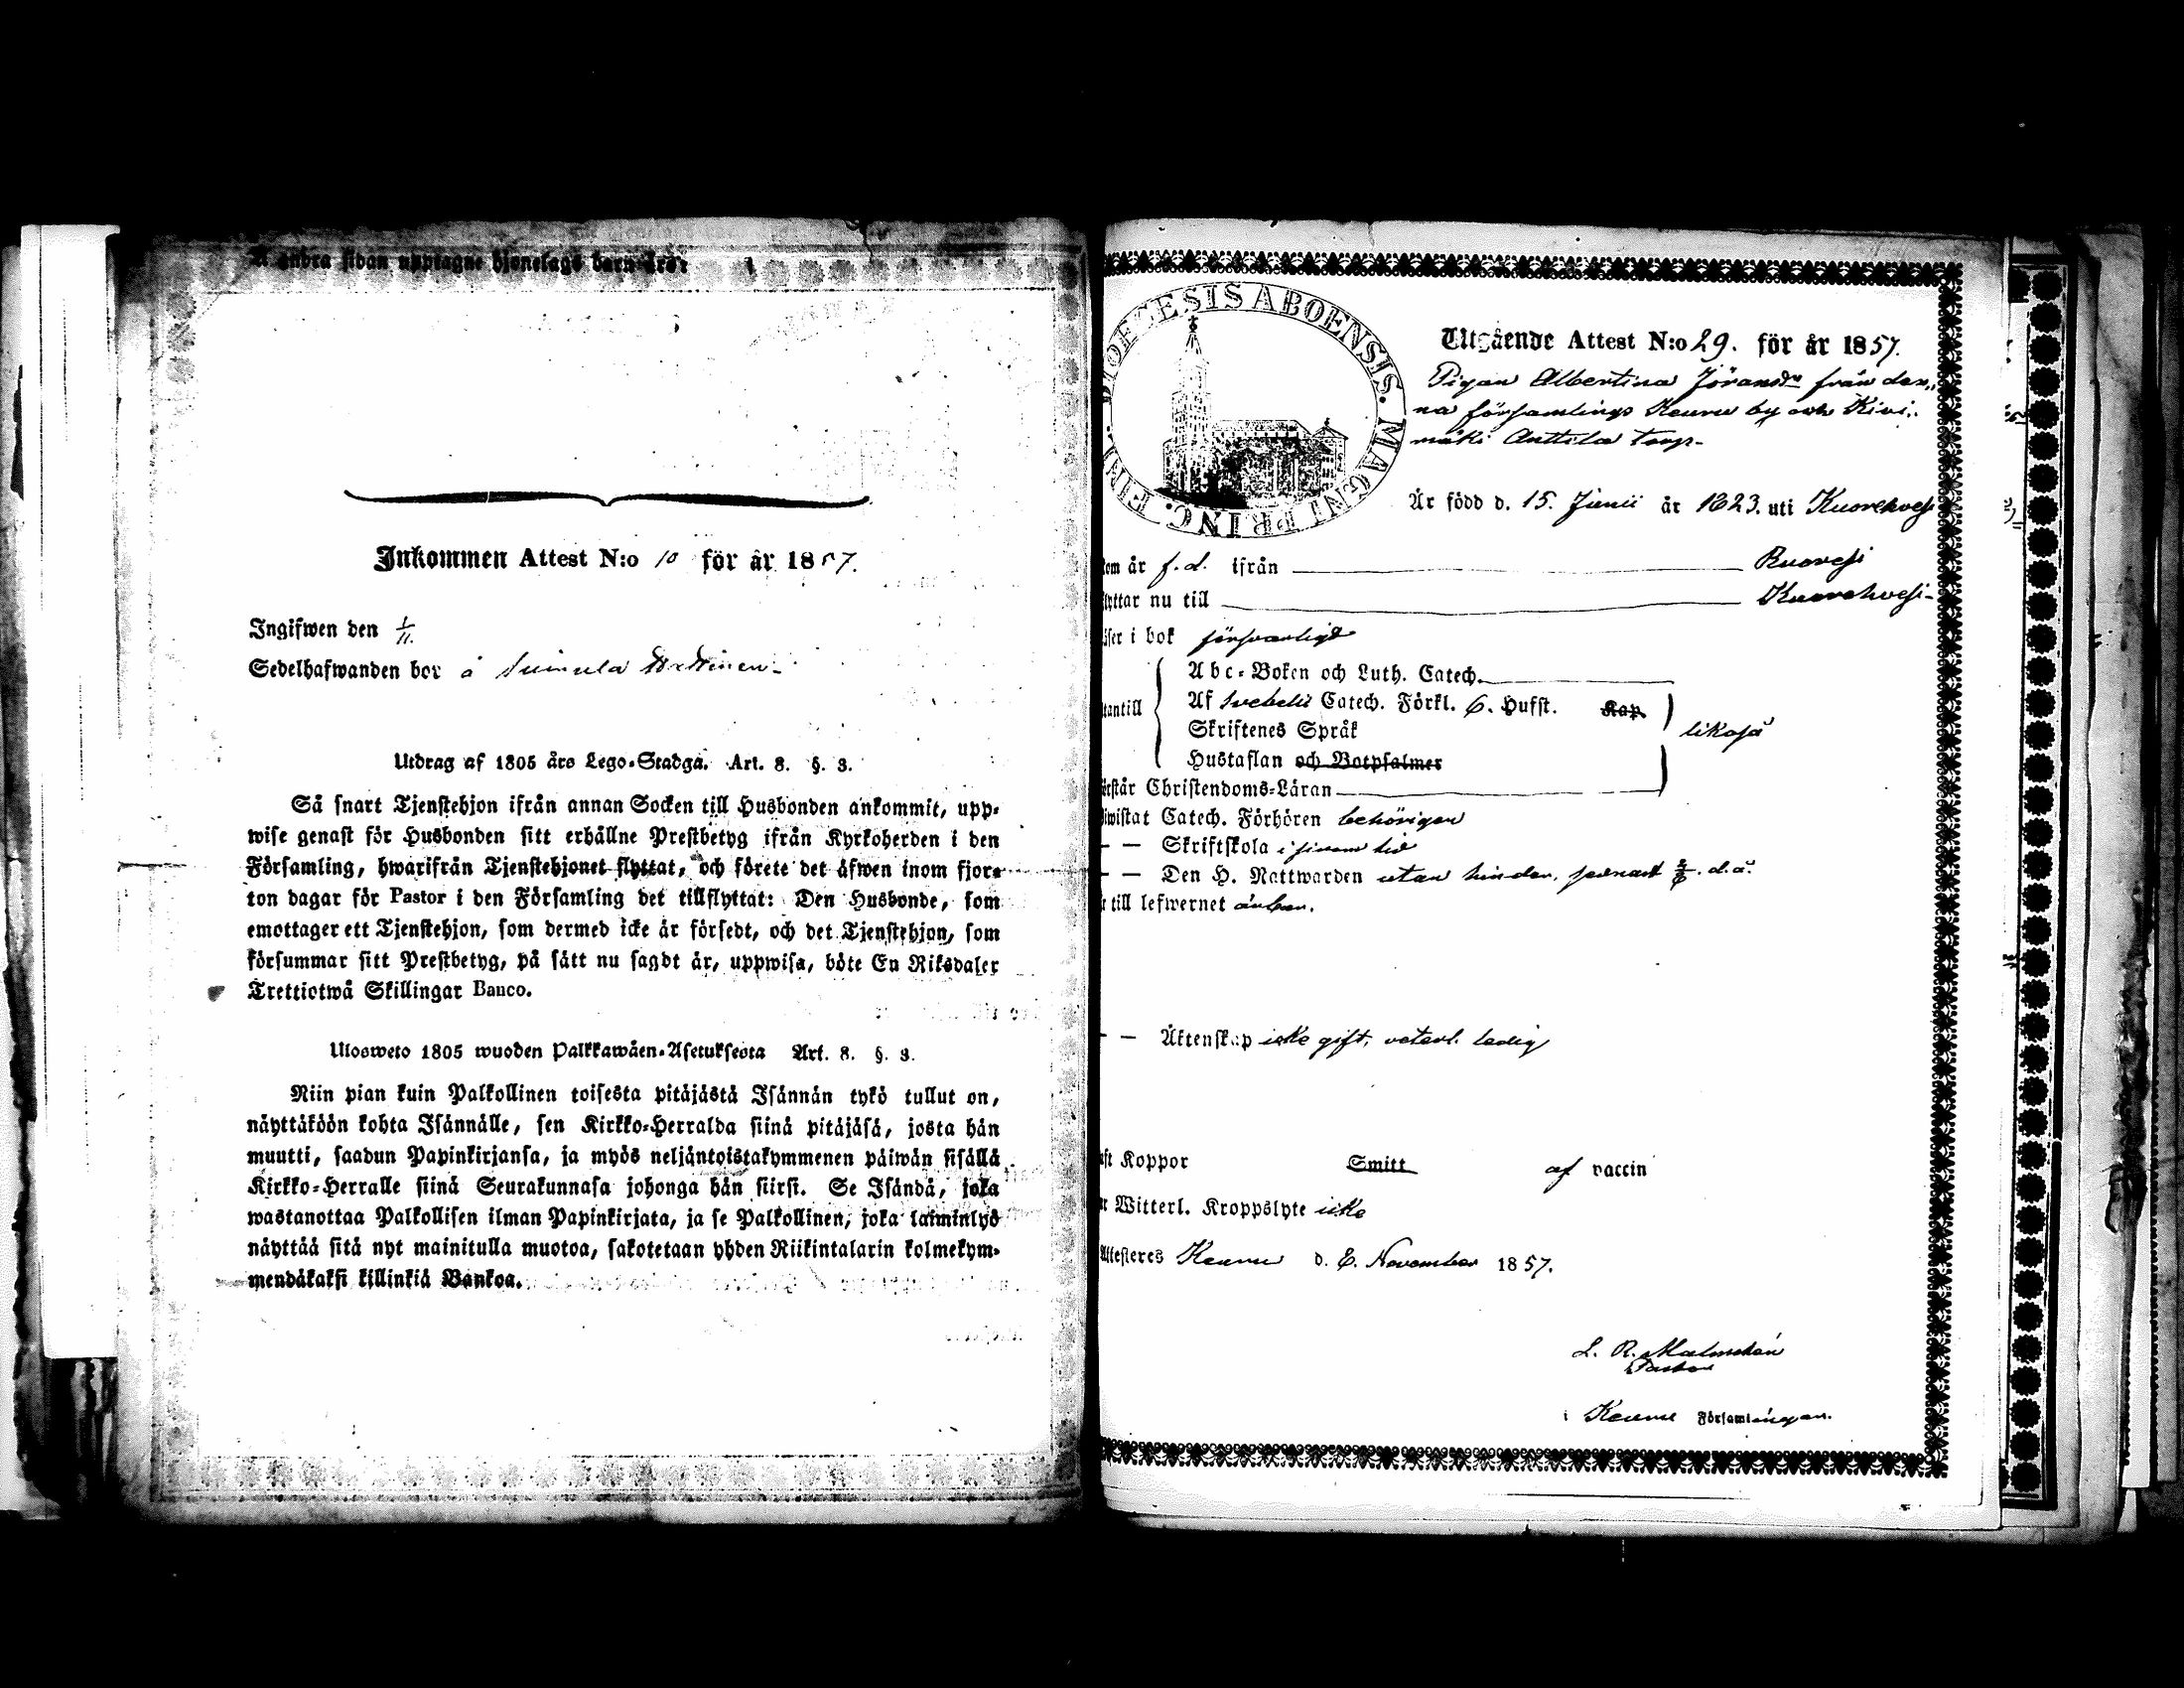 Å andra sidan upptagne hjonelags barn äro:
Inkommen Attest N:o 10 för år 1857.
Ingifwen den 1/11.
Sedelhafwanden bor å
Utdrag af 1805 års Lego-Stadga. Art. 8. §. 3.
Så snart Tjenstehjon ifrån annan Socken till Husbonden ankommit, upp-
wise genast för Husbonden sitt erhållne Prestbetyg ifrån Kyrkoherden i den
Församling, hwarifrån Tjenstehjonet flyttat, och förete det äfwen inom fjor-
ton dagar för Pastor i den Församling det tillflyttat: Den Husbonde, som
emottager ett Tjenstehjon, som dermed icke är försedt, och det Tjenstehjon, som
försummar sitt Prestbetyg, på sätt nu sagdt är, uppwisa, böte En Riksdaler
Trettiotwå Skillingar Banco.
Ulosweto 1805 wuoden Palkkawäen-Asetuksesta Art. 8. §. 3.
Niin pian kuin Palkollinen toisesta pitäjästä Isännän tykö tullut on,
näyttäköön kohta Isännälle, sen Kirkko-Herralda siinä pitäjäsä, josta hän
muutti, saadun Papinkirjansa, ja myös neljäntoistakymmenen päiwän sisällä
Kirkko-Herralle siinä Seurakunnasa johonga hän siirsi. Se Isändä, joka
wastanottaa Palkollisen ilman Papinkirjata, ja se Palkollinen, joka laiminlyö
näyttää sitä nyt mainitulla muotoa, sakotetaan yhden Riikintalarin kolmekym-
mendäkaksi killinkiä Bankoa.
DIOECESIS ABOENSIS. MAGNI PRINC. FINL.
Utgående Attest N:o 29. för år 1857.
Pigan Albertina Jöransdr från den-
na församlings Keuru by och Kivi-
mäki Anttila torp.
Är född d. 15. Junii år 1823. uti Kuorehvesi
kom år f. d. ifrån Ruovesi
flyttar nu till Kuorehvesi
läser i bok försvarligt
utantill
Abc-Boken och Luth. Catech.
Af Svebelii Catech. Förkl. 6. Hufst. Kap.
Skriftenes Språk
likaså
Hustaflan och Botpsalmer
förstår Christendoms-Läran
biwistat Catech. Förhören behörigen
— — Skriftskola i sinom tid
— — Den H. Nattwarden utan hinder, senast d. å.
är till lefwernet
— — Äktenskap icke gift, veterl. ledig
haft Koppor Smitt af vaccin
har Witterl. Kroppslyte icke
Attesteres Keuru d. 6. November 1857.
Pastor
i Keuru Församlingen.